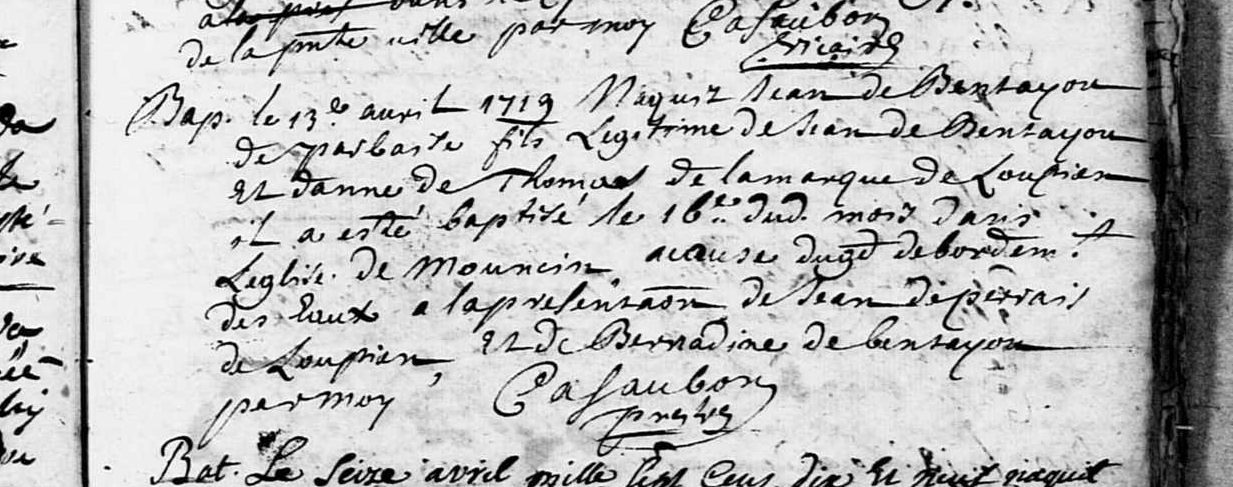 de la pnte ville par moy Casaubon
vicaire
Bap. le 13e avril 1719 Naquit Jean de Bentayou
de parbaste fils Legitime de Jean de Bentayou
Et danne de Thomas de lamarque de Loupien
il a esté baptisé le 16e dud. mois dans
Leglise de Mouncin acause dugd debordemt
des Eaux a la presentaõn de Jean de perrais
de Loupien, Et de Bernadine de bentayou
par moy Casaubon
prestre
Bat. Le seize avril mille sept Cens dix Et neuf naquit